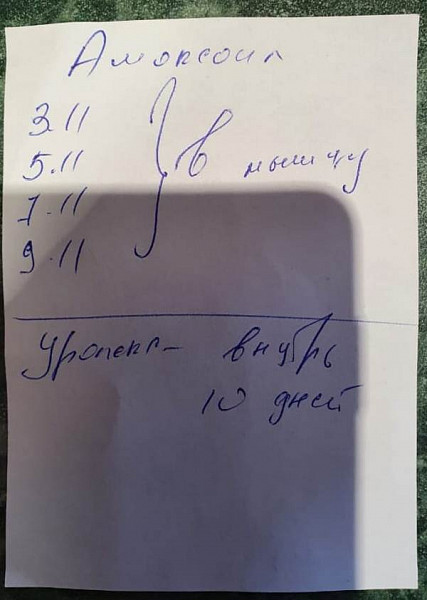 Амоксоил
3.11
5.11 } в мышцу
7.11
9.11
Уролекс - внутрь
10 дней